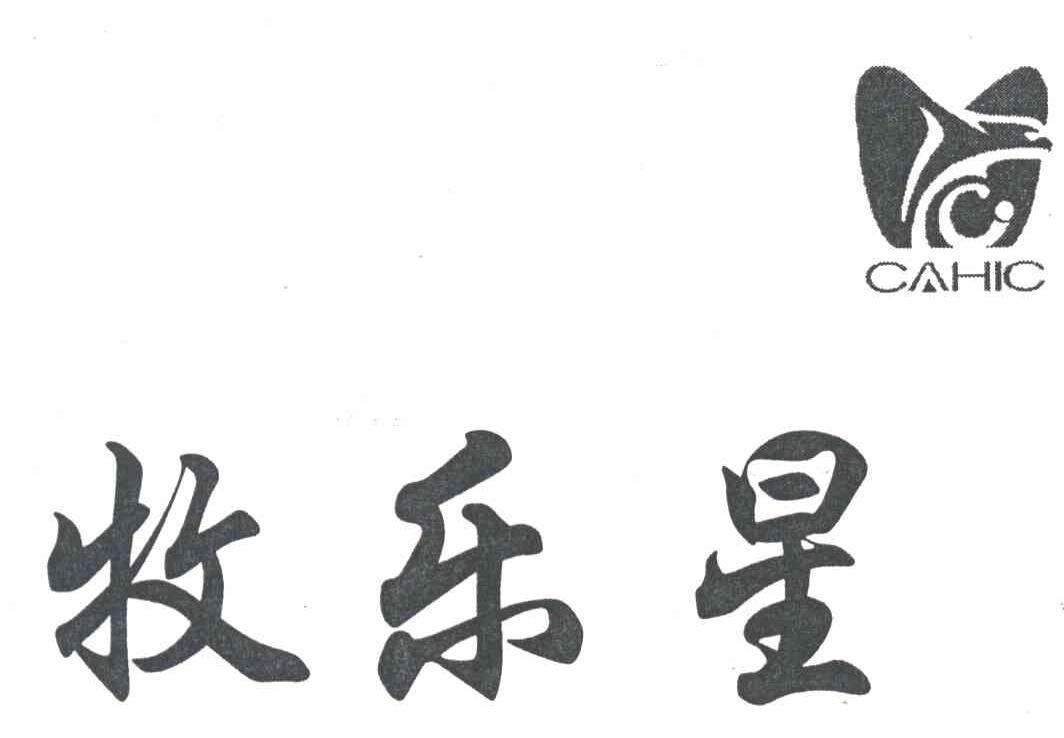 CAHIC
牧乐星